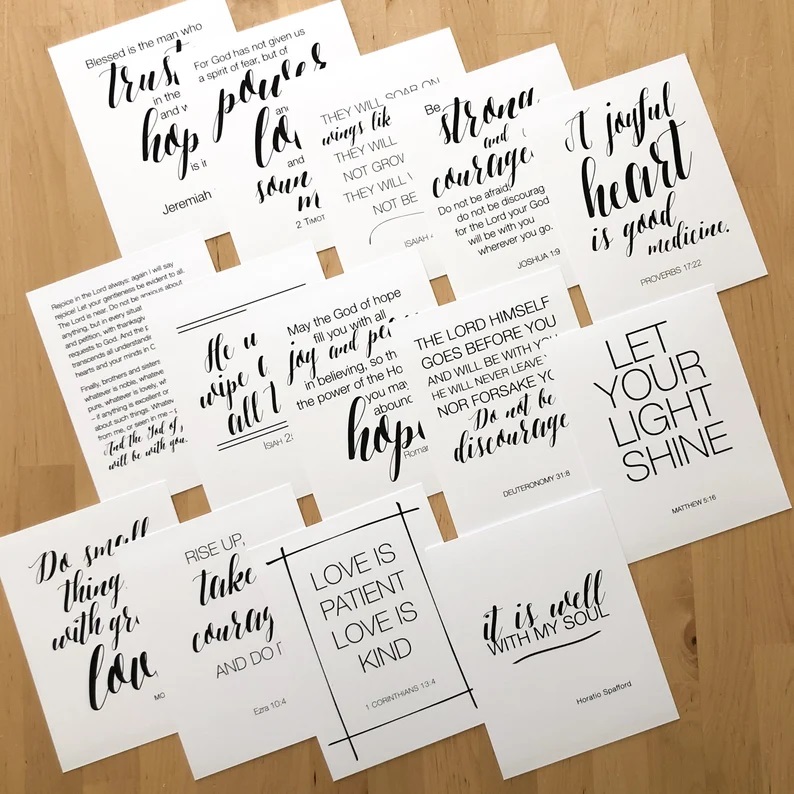 Blessed is the man who
trust
in the
and w
hop
is i
Jeremiah
For God has not given us
a spirit of fear, but of
power
and
lo
and
soun
m
2 TIMOT
THEY WILL SOAR ON
wings lik
THEY WILL
NOT GROW
THEY WILL
NOT BE
ISAIAH
Be
strong
and
courage
Do not be afraid;
do not be discourag
for the Lord your God
will be with you
wherever you go.
JOSHUA 1:9
A joyful
heart
is good
medicine.
PROVERBS 17:22
Rejoice in the Lord always: again I will say
rejoice! Let your gentleness be evident to all.
The Lord is near. Do not be anxious about
anything, but in every situat
and petition, with thanksgiv
requests to God. And the p
transcends all understandin
hearts and your minds in C
Finally, brothers and sisters
whatever is noble, whateve
pure, whatever is lovely, wh
– if anything is excellent or
about such things. Whateve
from me, or seen in me –
And the God of
will be with you.
He w
wipe
all
ISIAH 2
May the God of hope
fill you with all
joy and peac
in believing, so th
the power of the Ho
you may
abound
hope
Roman
THE LORD HIMSELF
GOES BEFORE YOU
AND WILL BE WITH YOU
HE WILL NEVER LEAVE
NOR FORSAKE YO
Do not be
discourage
DEUTERONOMY 31:8
LET
YOUR
LIGHT
SHINE
MATTHEW 5:16
Do small
thing
with gre
love
MO
RISE UP,
take
courag
AND DO
Ezra 10:4
LOVE IS
PATIENT
LOVE IS
KIND
1 CORINTHIANS 13:4
it is well
WITH MY SOUL
Horatio Spafford